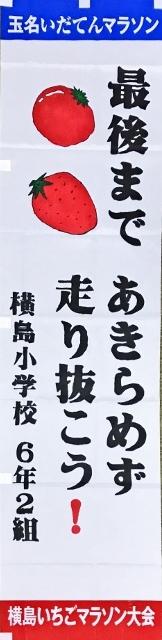 玉名いだてんマラソン
最後まで あきらめず
走り抜こう!
横島小学校 6年2組
横島いちごマラソン大会